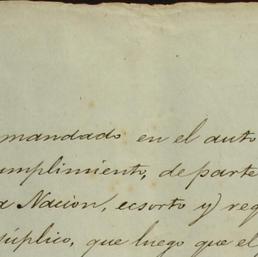 mandado en el auto
umplimiento, de parte
a Nacion, ecsorto y req
súplico, que luego que el